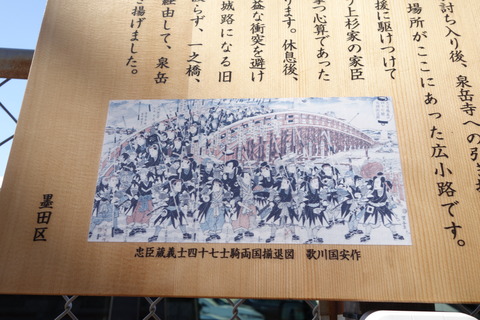 討ち入り後、泉岳寺への引
場所がここにあった広小路です。
後に駆けつけて
上杉家の家臣
心算であった
ます。休息後、
益な衝突を避け
城路になる旧
らず、一之橋、
経由して、泉岳
き揚げました。
墨田区
忠臣蔵義士四十七士騎両国揚退図 歌川国安作